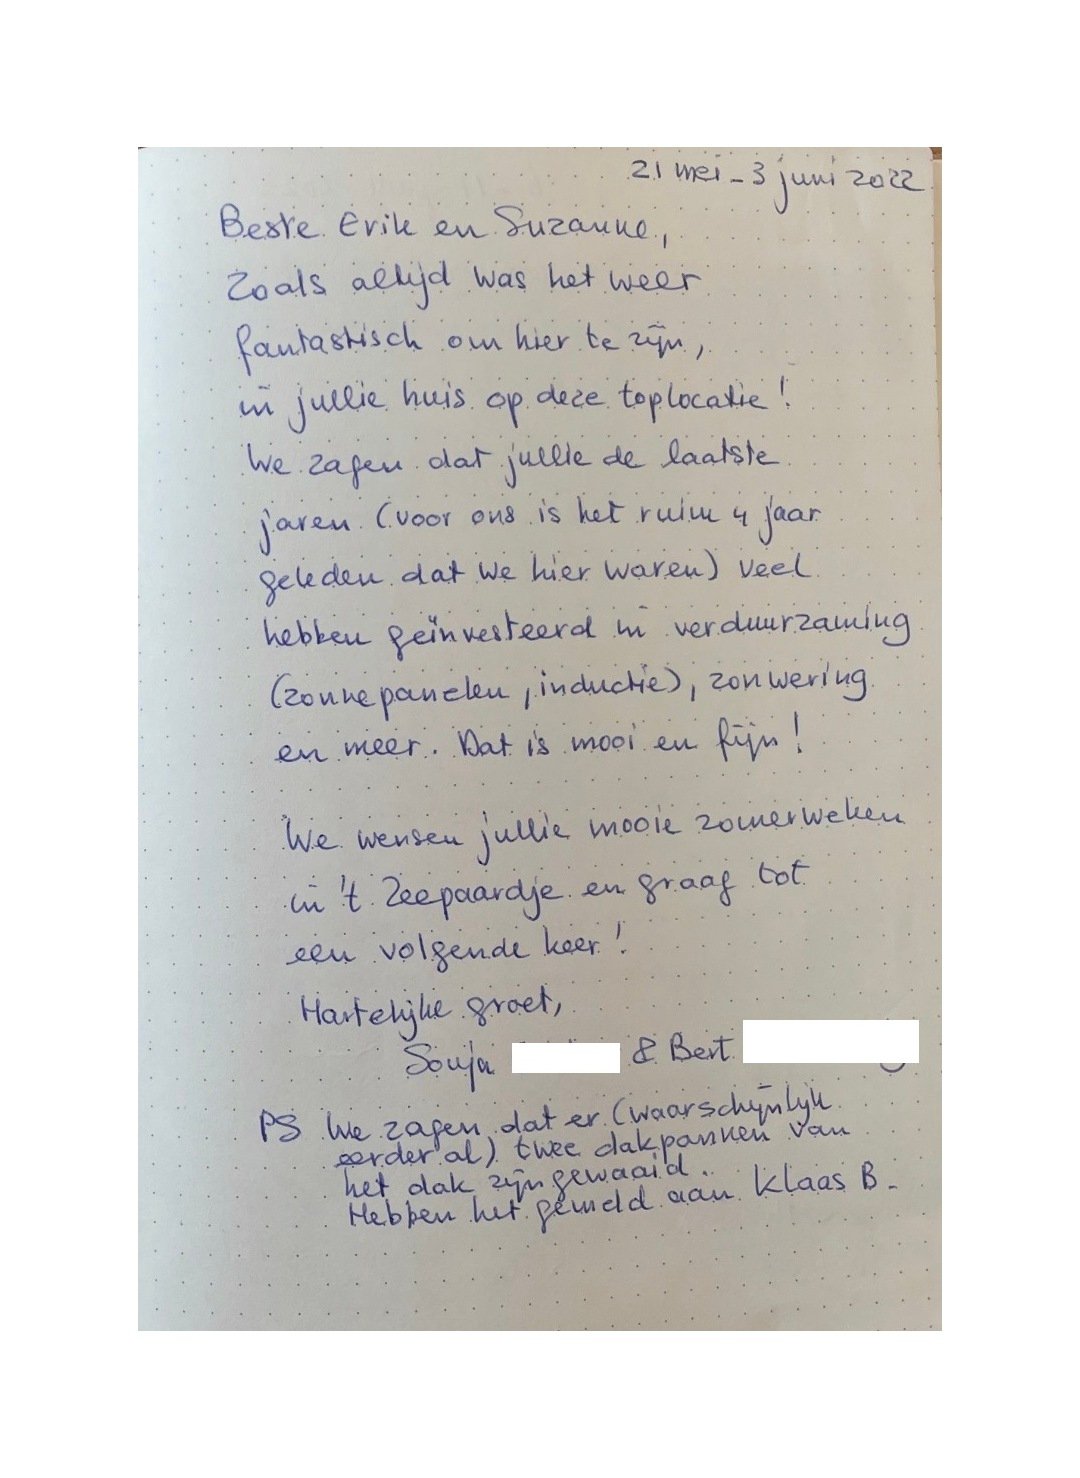 21 mei - 3 juni 2022
Beste Erik en Suzanne,
Zoals altijd was het weer
fantastisch om hier te zijn,
in jullie huis op deze toplocatie!
We zagen dat jullie de laatste
jaren (voor ons is het ruim 4 jaar
geleden dat we hier waren) veel
hebben geïnvesteerd in verduurzaming
(zonnepanelen, inductie), zonwering
en meer. Dat is mooi en fijn!
We wensen jullie mooie zomerweken
in 't Zeepaardje en graag tot
een volgende keer!
Hartelijke groet,
Sonja & Bert
PS We zagen dat er (waarschijnlijk
eerder al) twee dakpannen van
het dak zijn gewaaid.
Hebben het gemeld aan Klaas B.